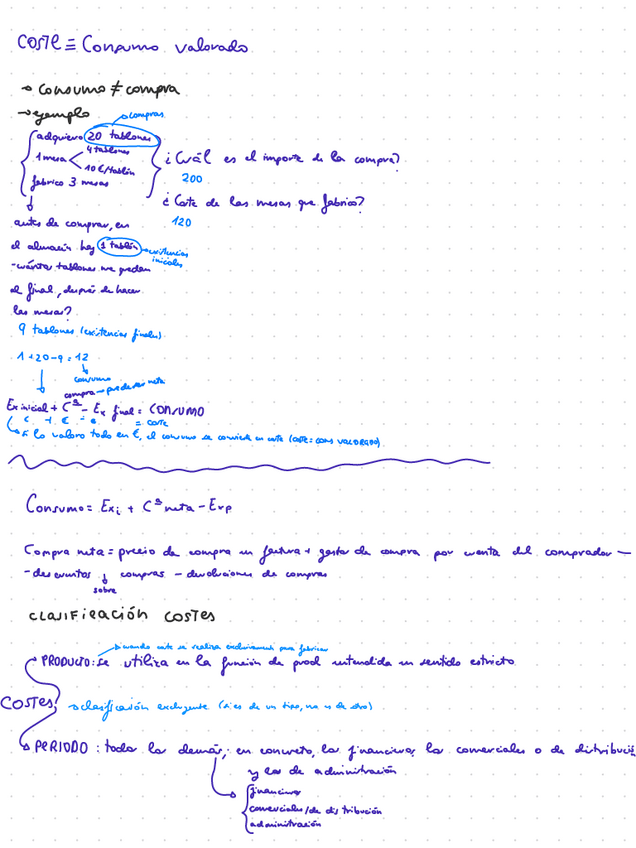 COSTE ≡ Consumo valorado
→ consumo ≠ compra
→ ejemplo
→ compras
adquiero 20 tablones
1 mesa < 4 tablones
10 €/tablón
fabrico 3 mesas
¿Cuál es el importe de la compra?
200
¿Coste de las mesas que fabrico?
120
antes de comprar, en
el almacén hay 1 tablón → existencias
iniciales
- cuántos tablones me quedan
al final, después de hacer
las mesas?
9 tablones (existencias finales)
1 + 20 - 9 = 12
consumo
compra → puede ser neta
Ex inicial + Cª - Ex final = CONSUMO
€ + € - € = coste
→ si lo valoro todo en €, el consumo se convierte en coste (coste = cons VALORADO)
Consumo = Exi + Cª neta - ExF
Compra neta = precio de compra en factura + gastos de compra por cuenta del comprador -
- descuentos ↓ compras - devoluciones de compras
sobre
CLASIFICACIÓN COSTES
→ cuando este se realiza exclusivamente para fabricar
→ PRODUCTO: se utiliza en la función de prod entendida en sentido estricto
COSTES → clasificación excluyente (si es de un tipo, no es de otro)
→ PERIODO: todos los demás; en concreto, los financieros, los comerciales o de distribución
y los de administración
→ financieros
comerciales/de distribución
administración